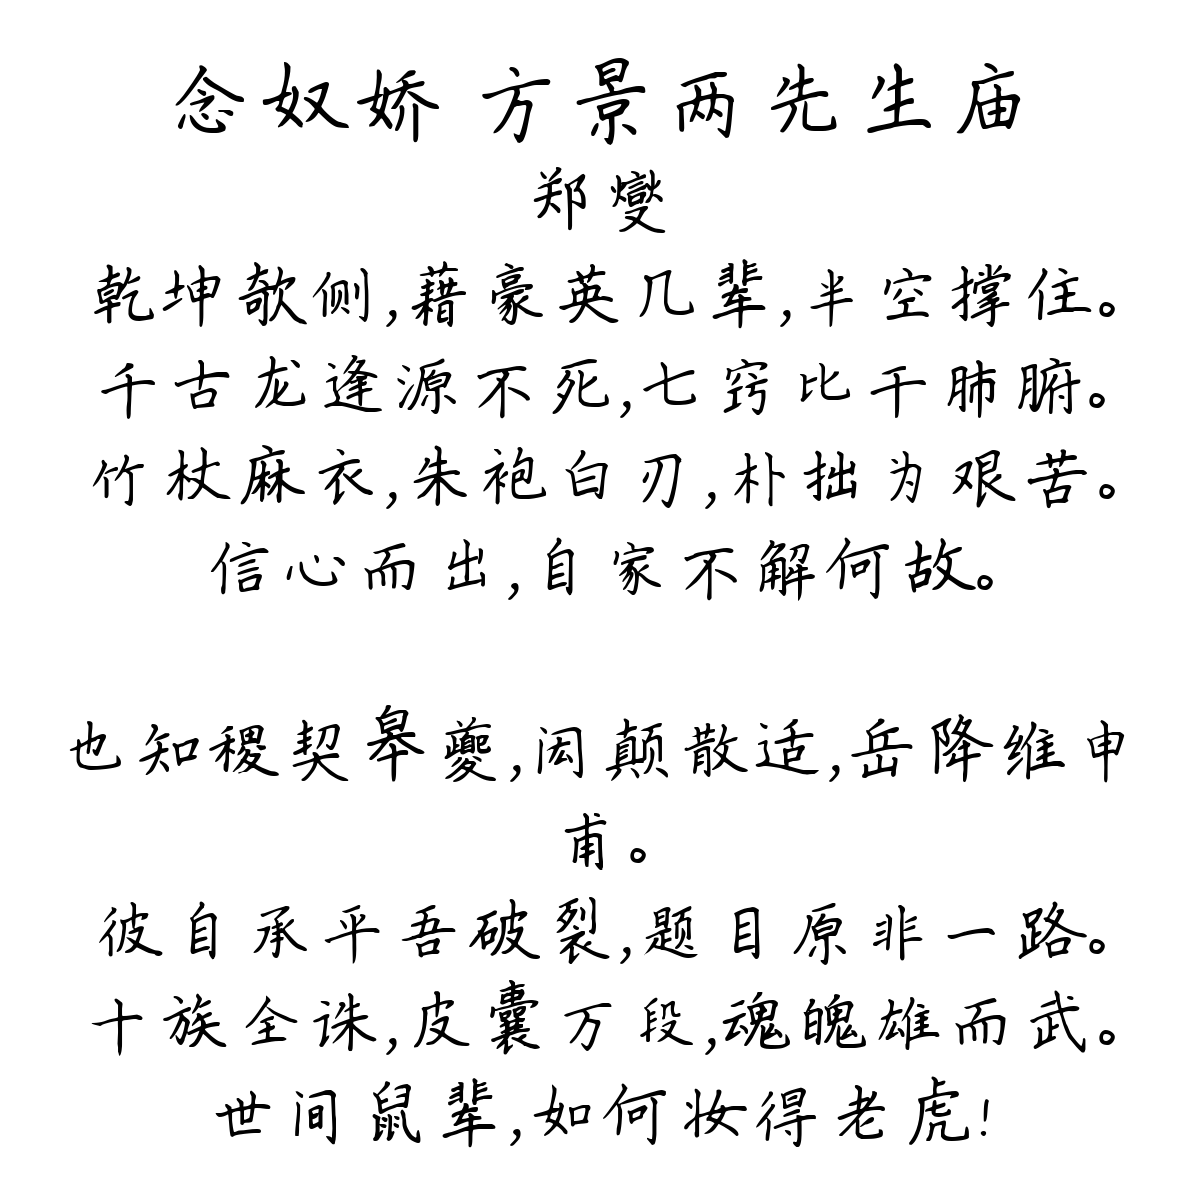 念奴娇 方景两先生庙
郑燮
乾坤欹侧,藉豪英几辈,半空撑住。
千古龙逢源不死,七窍比干肺腑。
竹杖麻衣,朱袍白刃,朴拙为艰苦。
信心而出,自家不解何故。
也知稷契皋夔,闳颠散适,岳降维申
甫。
彼自承平吾破裂,题目原非一路。
十族全诛,皮囊万段,魂魄雄而武。
世间鼠辈,如何妆得老虎!